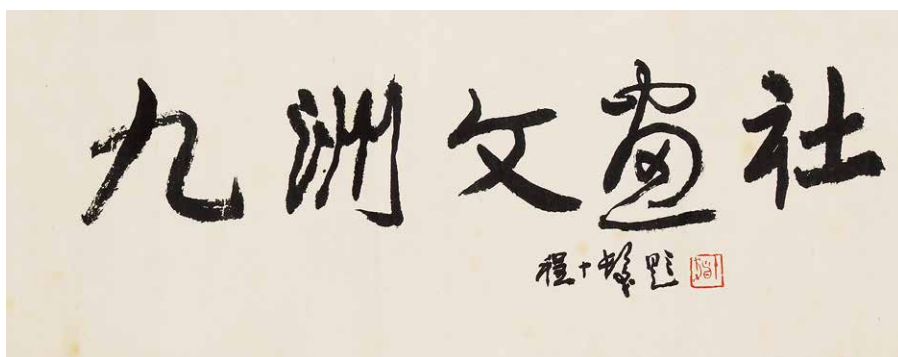 九洲文畫社
程十髮題